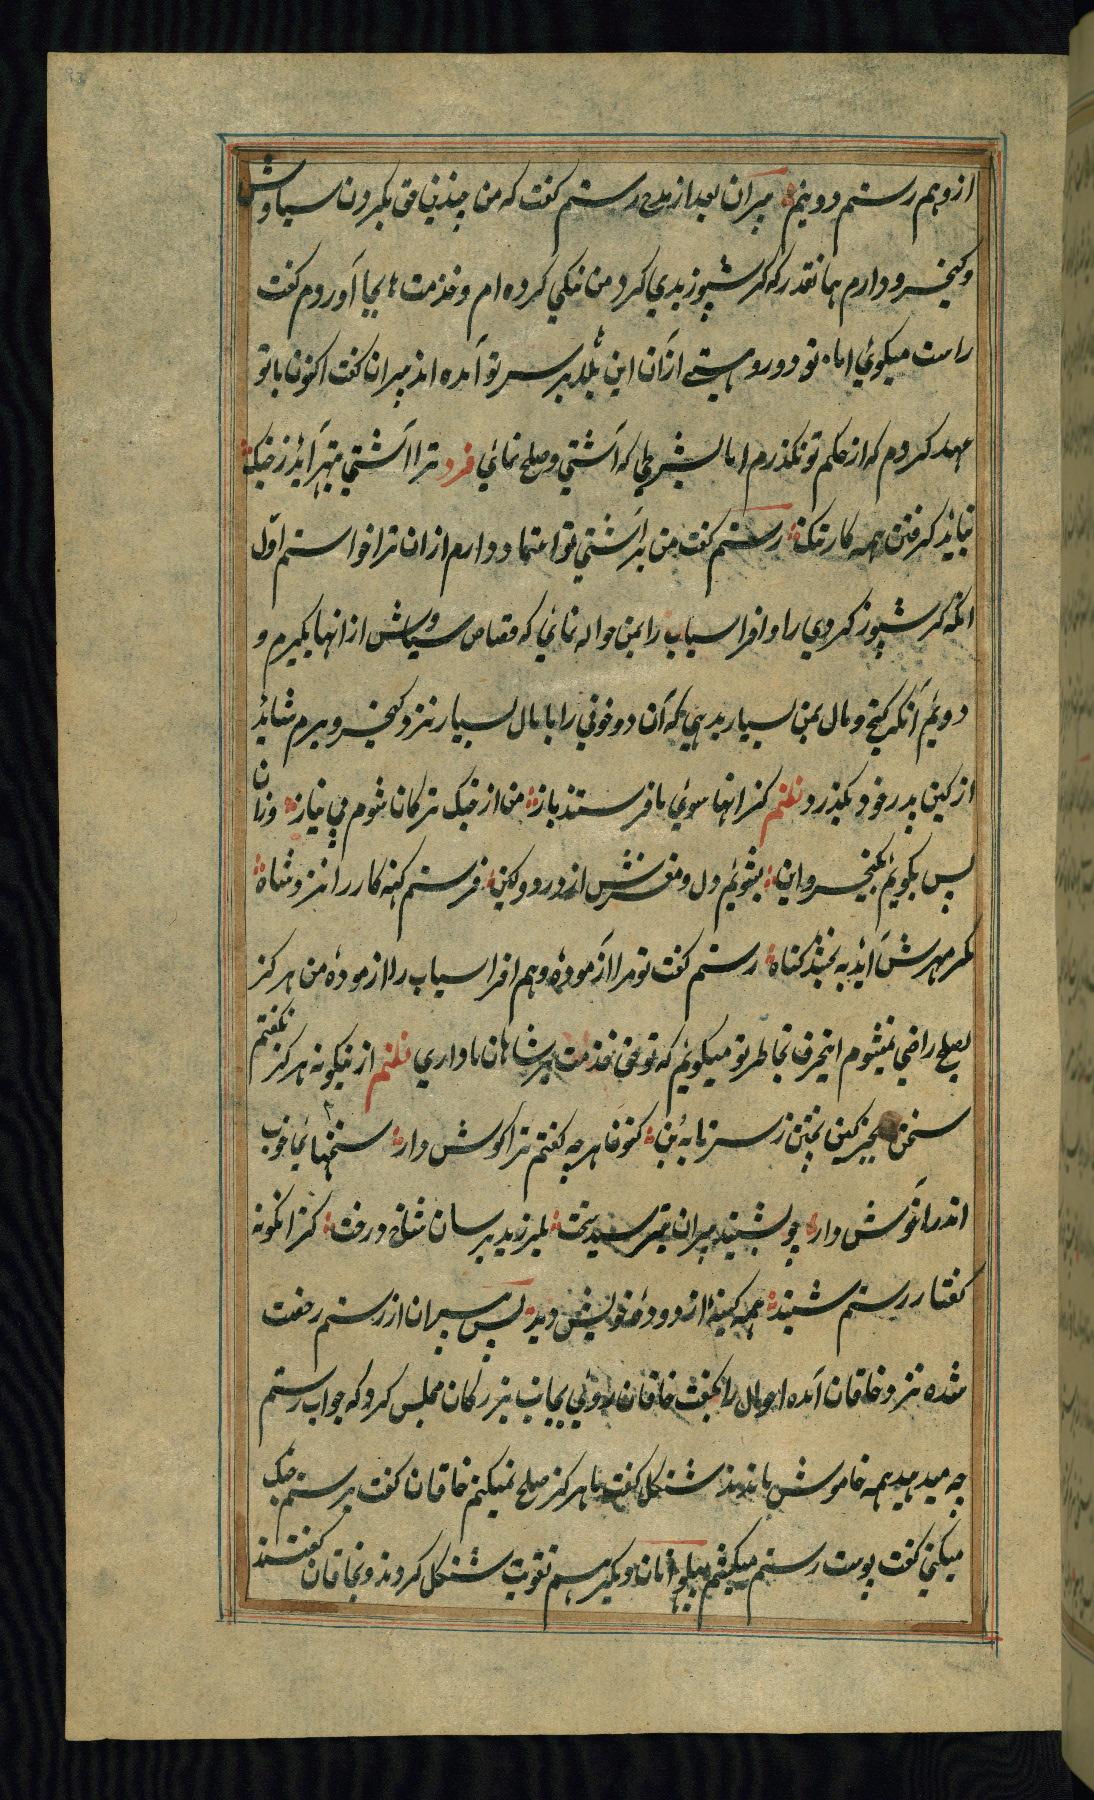 از وهم رستم دو نیم پیران بعد از مدح رستم کفت که من چندین حق بکردن سیاوش
و کیخسرو دارم همانقدر که کرشیوز بدی کرد من نیکی کرده ام و خدمت ها بجا آوردم کفت
راست میکوئی اما تو دورو هستی از آن این بلا بر سر تو آمده اند پیران کفت اکنون با تو
عهد کردم که از حکم تو نکذرم اما بشرطی که آشتی و صلح نمائی فرد ترا آشتی بهتر آید ز جنک
نباید کرفتن همه کار تنک رستم کفت من بر آشتی تو اعتماد دارم از ان ترا خواستم اوّل
انکه کرشیوز کردی را و افراسیاب را بمن حواله نمائی که قصاص سیاوش از انها بکیرم و
دویم آنکه کنج و مال بمن بسیار بدهی که آن دو خونی را با مال بسیار نزد کیخسرو برم شاید
از کین پدر خود بکذرد نظم کز انها سوی ما فرستند باز من از جنک ترکان شوم بی نیاز وزان
پس بکویم بکیخسرو این بشویم دل و مغزش از درد و کین فرستم کنه کار را نزد شاه
مکر مهرش آید به بخشد کناه رستم کفت تو مرا آزموده وهم افراسیاب را ازموده من هرکز
بصلح راضی نمیشوم اینحرف بخاطر تو میکویم که تو حق خدمت بر شاهان ما داری نظم از نیکونه هرکز نکفتم
سخن بجز کین نجتن ز سر تا به بن کنون هر چه کفتم ترا کوش دار سخنهای خوب
اندر آغوش دار چو بشنید پیران بترسید سخت بلرزید برسان شاخ درخت کز انکونه
کفتار رستم شنید همه کینه از دوده خویش دید پس پیران از رستم رخصت
شده نزد خاقان آمده احوال را بکفت خاقان روئی بجانب بزرکان مجلس کرد که جواب رستم
چه میدهید همه خاموش ماندند شنکل کفت ما هرکز صلح نمیکنم خاقان کفت برستم جنک
میکنی کفت پوست رستم میکشم پهلوانان دیکر هم تقویت شنکل کردند و بخاقان کفتند